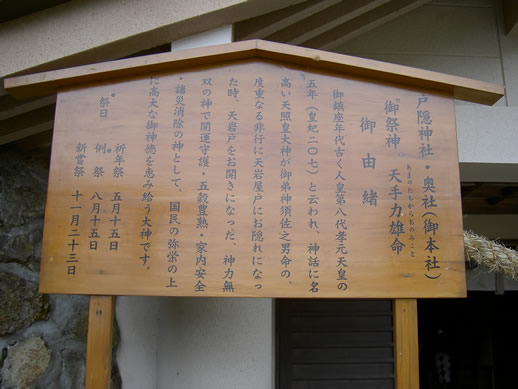 戸隠神社・奥社(御本社)
御祭神 天手力雄命
あまのたぢからおのみこと
御由緒
御鎮座年代古く人皇第八代孝元天皇の
五年(皇紀二〇七)と云われ、神話に名
高い天照皇大神が御弟神須佐之男命の、
度重なる非行に天岩屋戸にお隠れになっ
た時、天岩戸をお開きになった、神力無
双の神で開運守護・五穀豊熟・家内安全
・諸災消除の神として、国民の弥栄の上
に高大な御神徳を恵み給う大神です。
祭日
祈年祭 五月十五日
例祭 八月十五日
新嘗祭 十一月二十三日